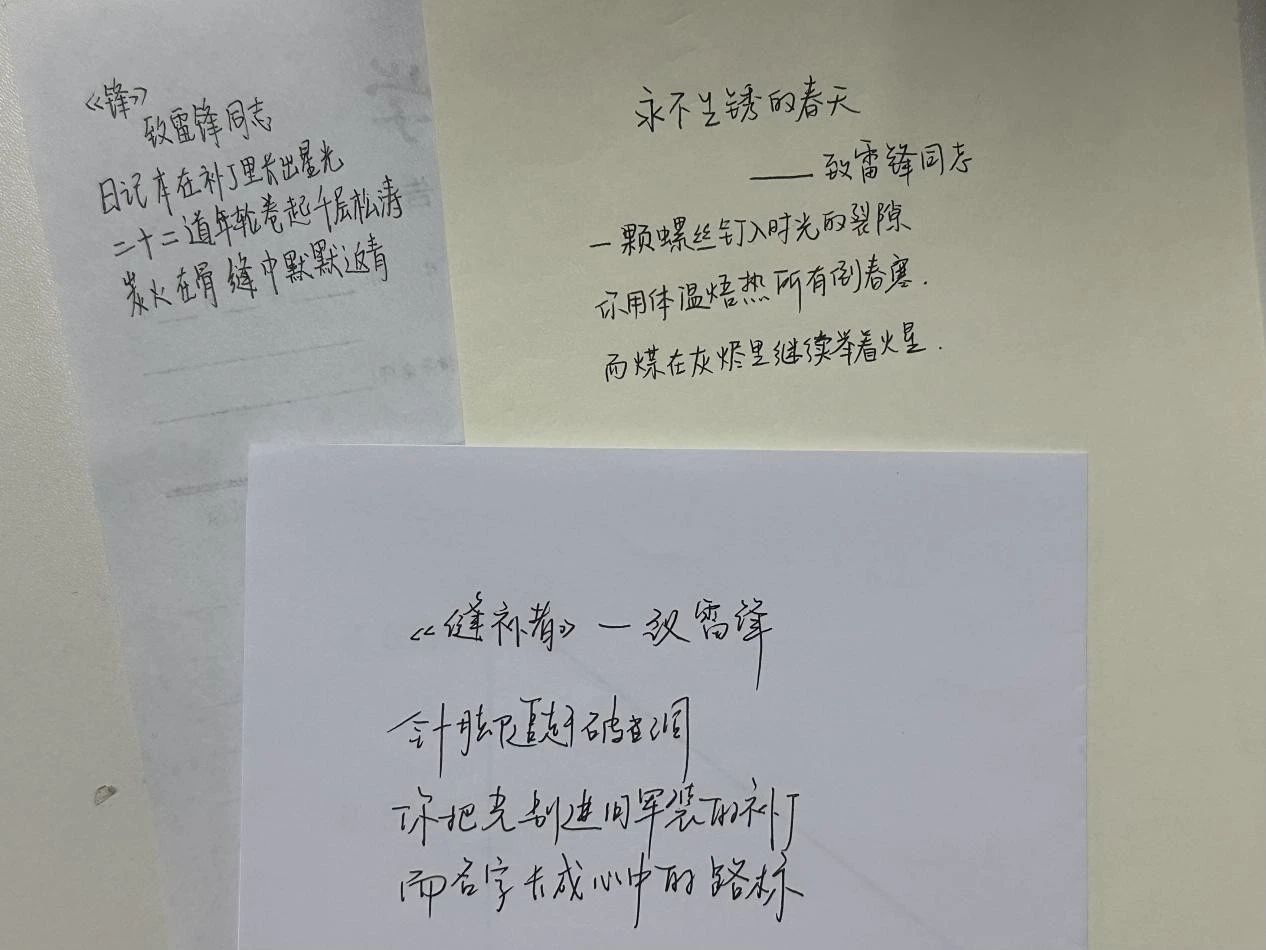 《锋》
致雷锋同志
日记本在补丁里长出星光
二十二道年轮卷起千层松涛
炭火在骨缝中默默返青
永不生锈的春天
——致雷锋同志
一颗螺丝钉入时光的裂隙
你用体温焐热所有倒春寒.
而煤在灰烬里继续举着火星.
《缝补者》—致雷锋
针脚追赶破洞
你把光别进旧军装的补丁
而名字长成心中的路标